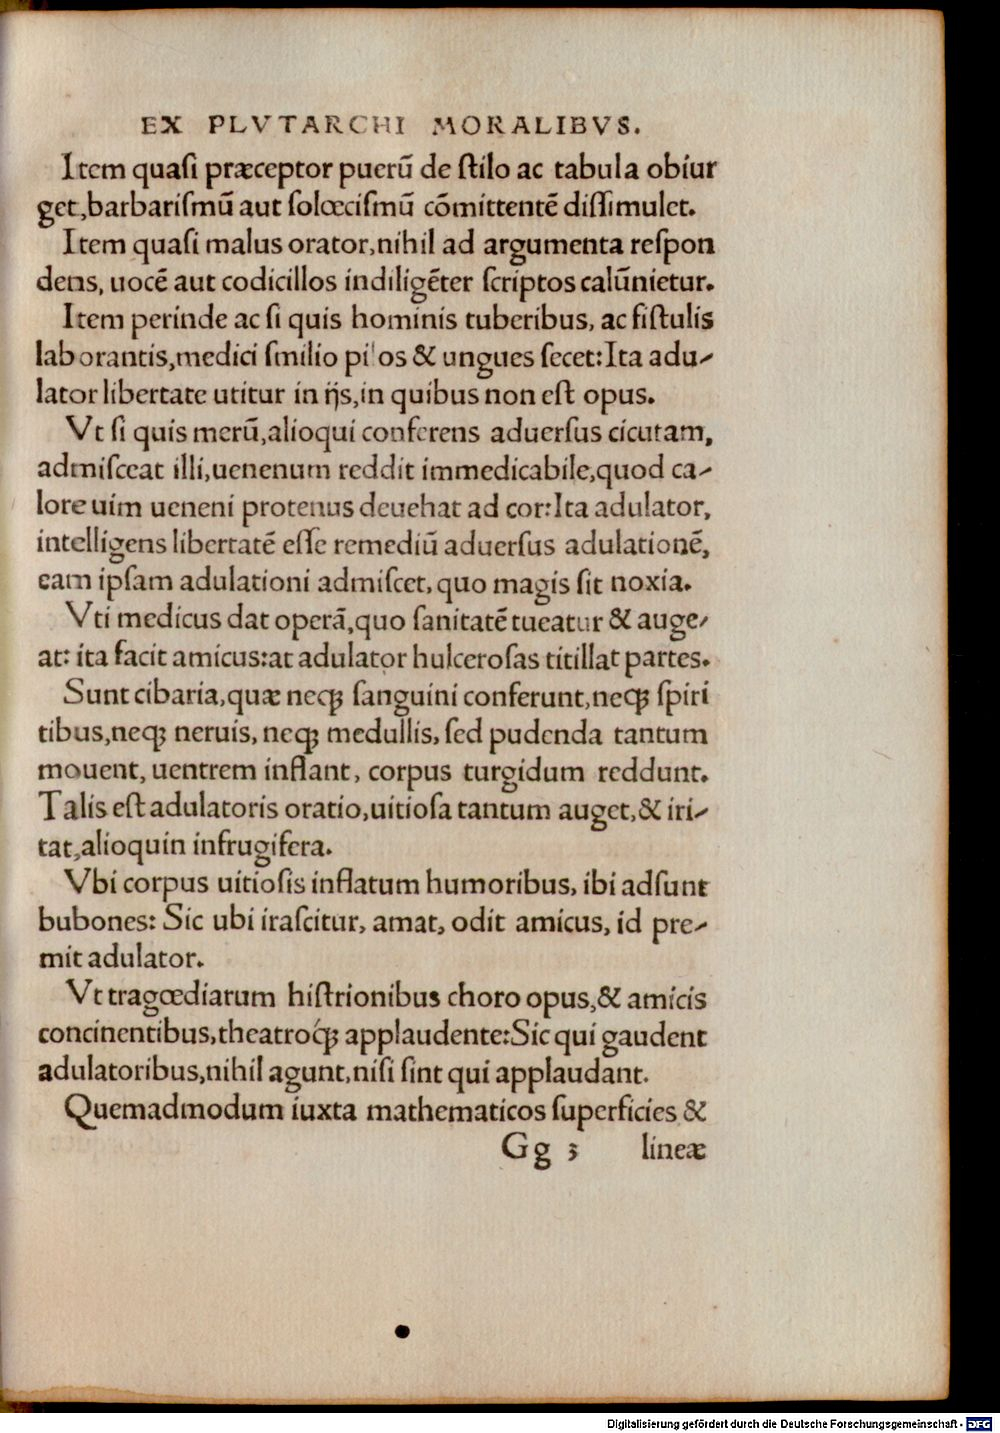 EX PLVTARCHI MORALIBVS.
Item quaſi præceptor puerū de ſtilo ac tabula obiur
get,barbariſmū aut ſolœciſmū cōmittentē diſſimulet.
Item quaſi malus orator,nihil ad argumenta reſpon
dens, uocē aut codicillos indiligēter ſcriptos calūnietur.
Item perinde ac ſi quis hominis tuberibus, ac fiſtulis
laborantis,medici ſmilio pilos & ungues ſecet:Ita adu-
lator libertate utitur in ijs,in quibus non eſt opus.
Vt ſi quis merū,alioqui conferens aduerſus cicutam,
admiſceat illi,uenenum reddit immedicabile,quod ca-
lore uim ueneni protenus deuehat ad cor:Ita adulator,
intelligens libertatē eſſe remediū aduerſus adulationē,
eam ipſam adulationi admiſcet, quo magis ſit noxia.
Vti medicus dat operā,quo ſanitatē tueatur & auge-
at: ita facit amicus:at adulator hulceroſas titillat partes.
Sunt cibaria,quæ neqꝫ ſanguini conferunt,neqꝫ ſpiri
tibus,neqꝫ neruis, neqꝫ medullis, ſed pudenda tantum
mouent, uentrem inflant, corpus turgidum reddunt.
Talis eſt adulatoris oratio,uitioſa tantum auget,& iri-
tat,alioquin infrugifera.
Vbi corpus uitioſis inflatum humoribus, ibi adſunt
bubones: Sic ubi iraſcitur, amat, odit amicus, id pre-
mit adulator.
Vt tragœdiarum hiſtrionibus choro opus,& amicis
concinentibus,theatroq́ꝫ applaudente:Sic qui gaudent
adulatoribus,nihil agunt,niſi ſint qui applaudant.
Quemadmodum iuxta mathematicos ſuperficies &
Gg 3 lineæ
Digitalisierung gefördert durch die Deutsche Forschungsgemeinschaft - DFG